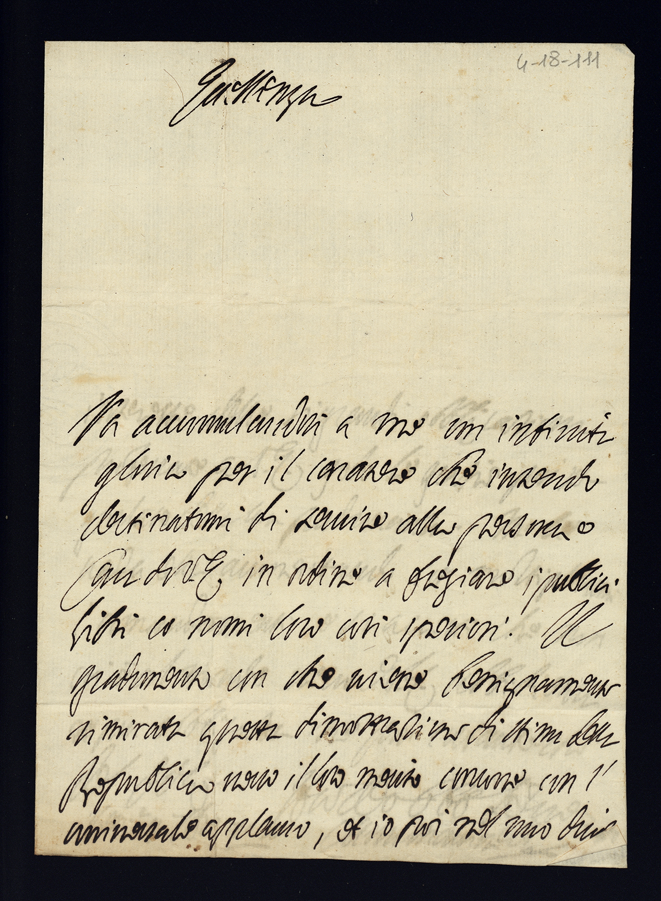 4-18-111
Eccellenza
Va accumulandosi a me un infinita
gloria per il carattere che intendo
destinatomi di servire alla persona e
Casa di V. E. in ordine a fregiare i publici
libri co nomi loro così speciosi. Il
gradimento con che viene benignamente
rimirata questa dimostrazione di stima della
Republica verso il loro merito concorre con l'
universale applauso, et io poi nel mio